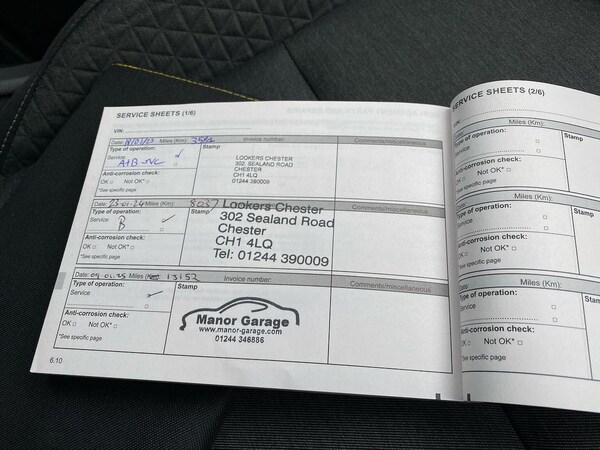 SERVICE SHEETS (1/6)
VIN:
Date: Miles (Km): 3584 Invoice number: Comments/miscellaneous
Type of operation: Stamp
Service
A+B
Anti-corrosion check:
OK □ Not OK* □
*See specific page
LOOKERS CHESTER
302, SEALAND ROAD
CHESTER
CH1 4LQ
01244 390009
Date: 23-01-24 Miles (Km): 8037 Comments/miscellaneous
Type of operation: Stamp
Service
B
Anti-corrosion check:
OK □ Not OK* □
*See specific page
Lookers Chester
302 Sealand Road
Chester
CH1 4LQ
Tel: 01244 390009
Date: 09.01.25 Miles 13152 Invoice number: Comments/miscellaneous
Type of operation: Stamp
Service
Anti-corrosion check:
OK □ Not OK* □
*See specific page
Manor Garage
www.manor-garage.com
01244 346886
6.10
SERVICE SHEETS (2/6)
VIN:
Date: Miles (Km):
Type of operation: Stamp
Service
Anti-corrosion check:
OK □ Not OK* □
*See specific page
Miles (Km):
Type of operation: Stamp
Service
Anti-corrosion check:
OK □ Not OK* □
*See specific page
Miles (Km):
Type of operation: Stamp
Service
Anti-corrosion check:
OK □ Not OK* □
*See specific page